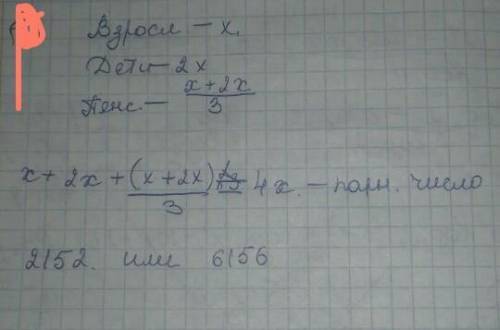 Взросл – x.
Дети – 2x
Пенс. – (x + 2x)/3
x + 2x + (x + 2x)/3 = 4x. – парн. число
2152. или 6156